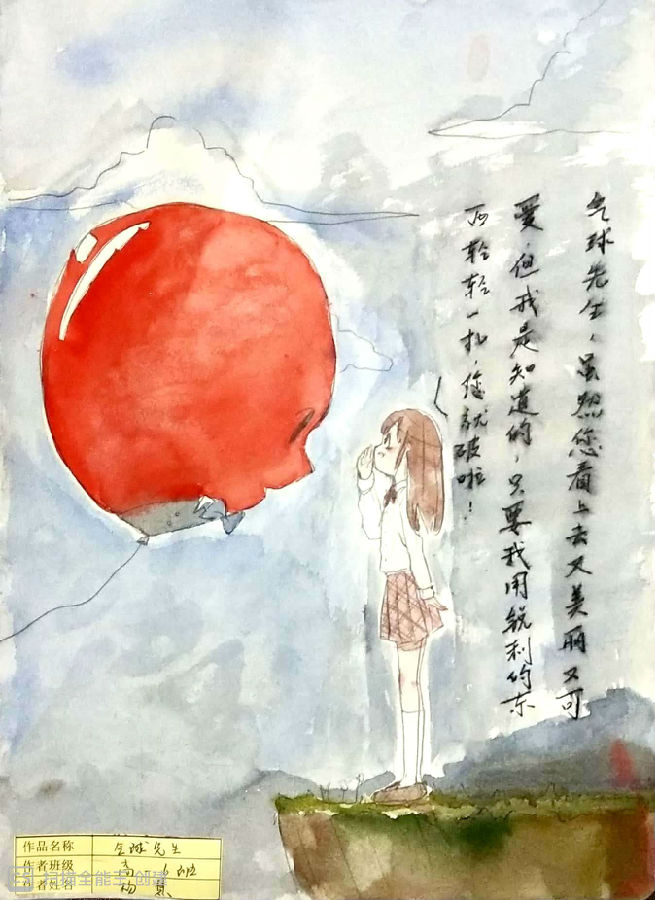 气球先生，虽然您看上去又美丽又可
爱，但我是知道的，只要我用锐利的东
西轻轻一扎，您就破啦！
作品名称 气球先生
作者班级 高 班
作者姓名
扫描全能王 创建